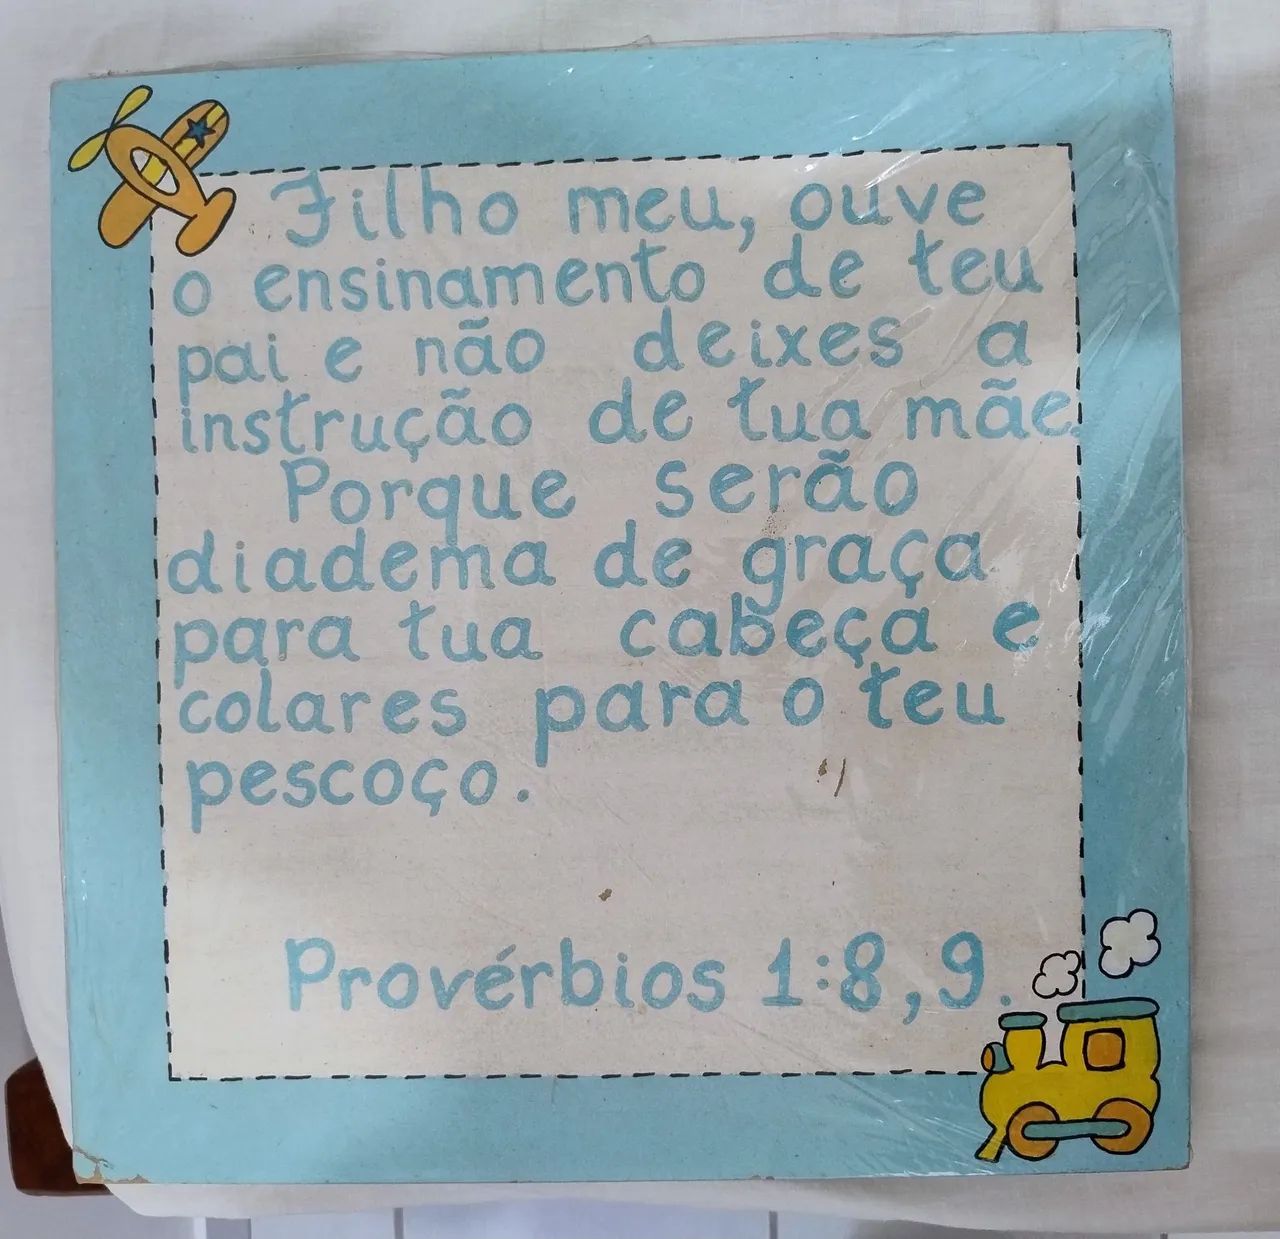 Filho meu, ouve
o ensinamento de teu
pai e não deixes a
instrução de tua mãe.
Porque serão
diadema de graça
para tua cabeça e
colares para o teu
pescoço.
Provérbios 1:8,9.